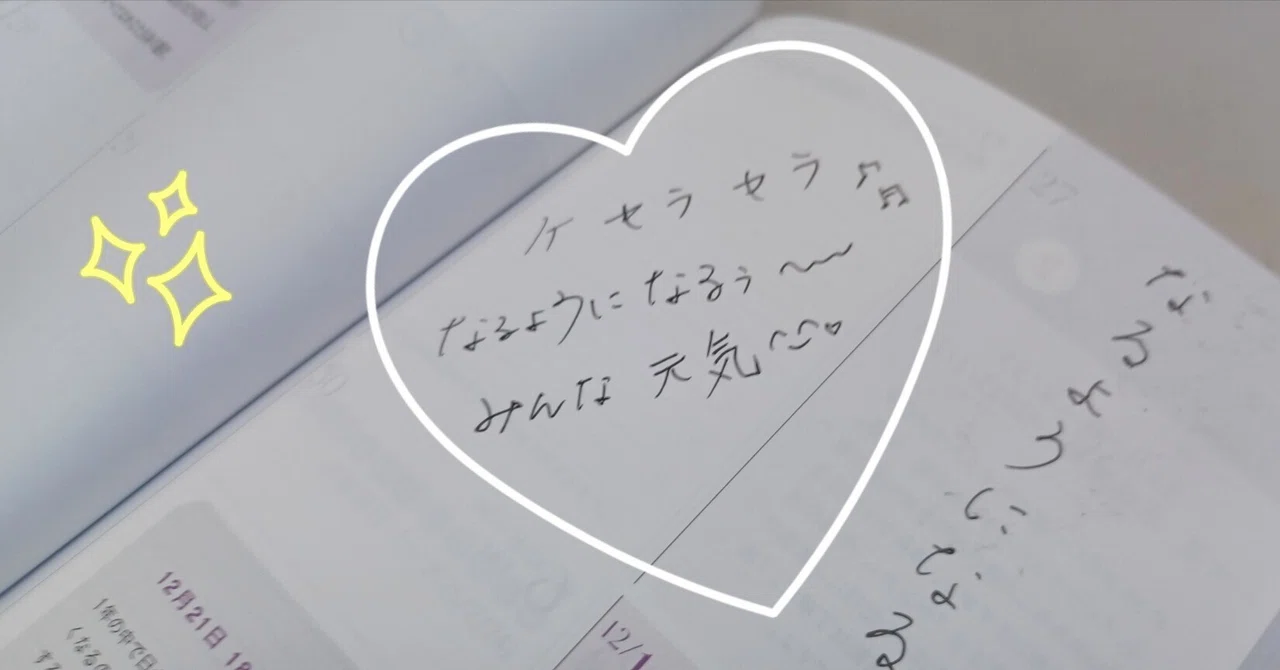 ケ セラ セラ♪♬
なるようになるぅ〜
みんな 元気
なるようになる
27
12月21日
1年の中で
くなる
12/1